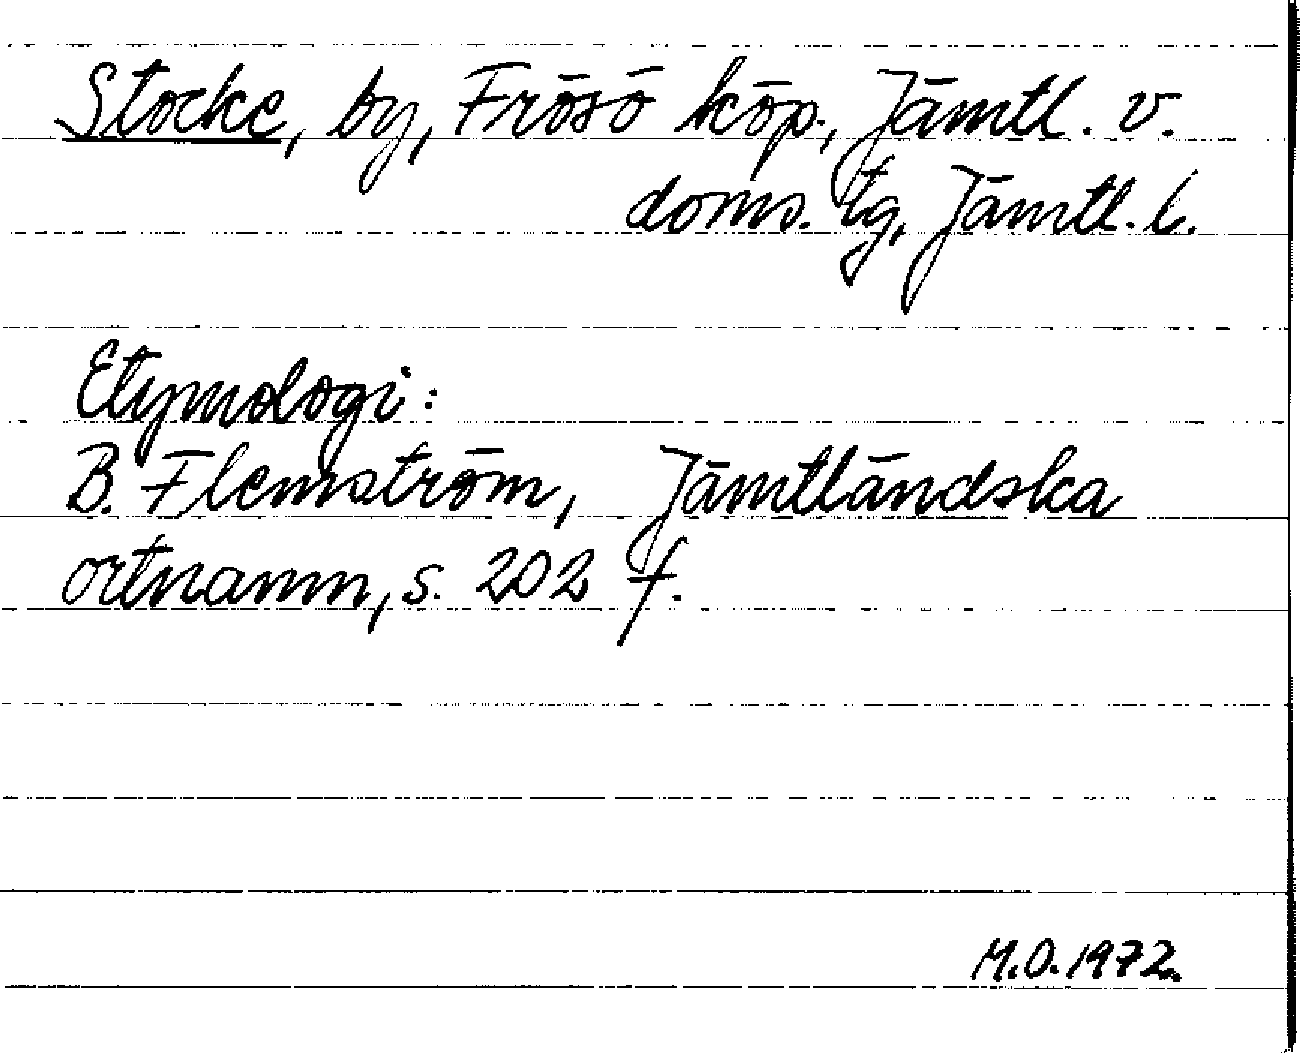 Stocke, by, Frösö köp., Jämtl. v.
doms. tg, Jämtl. l.
Etymologi:
B. Flemström, Jämtländska
ortnamn, s. 202 f.
M.O. 1972.